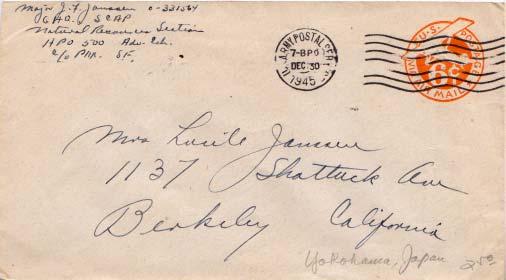 Major J. F. Janssen O-331564
GHQ. SCAP
Natural Resources Section
APO 500 Adv. Ech.
c/o PM. SF.
U.S. ARMY POSTAL SERVICE
7-BPO
DEC 30
1945
U.S. POSTAGE
6¢
VIA AIR MAIL
Mrs Lucile Janssen
1137 Shattuck Ave
Berkeley California
Yokohama, Japan 2.50